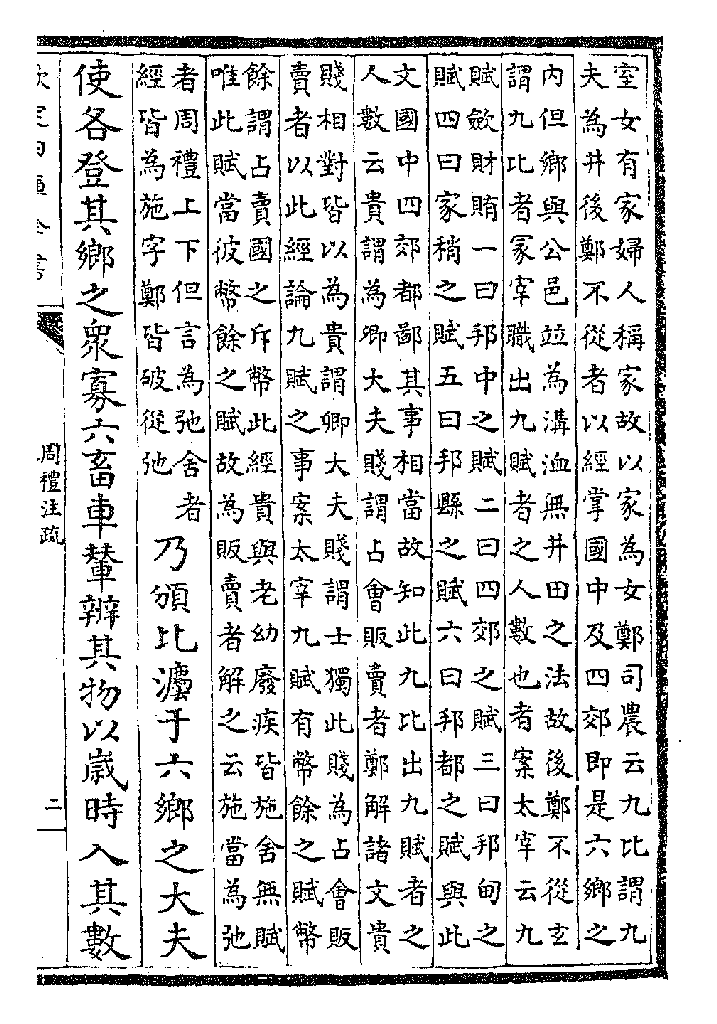 室女有家婦人稱家故以家為女鄭司農云九比謂九
夫為井後鄭不從者以經掌國中及四郊即是六鄉之
内但鄉與公邑竝為溝洫無井田之法故後鄭不從玄
謂九比者冢宰職出九賦者之人數也者案太宰云九
賦斂財賄一曰邦中之賦二曰四郊之賦三曰邦甸之
賦四曰家稍之賦五曰邦縣之賦六曰邦都之賦與此
文國中四郊都鄙其事相當故知此九比出九賦者之
人數云貴謂為卿大夫賤謂占會販賣者鄭解諸文貴
賤相對皆以為貴謂卿大夫賤謂士獨此賤為占會販
賣者以此經論九賦之事案太宰九賦有幣餘之賦幣
餘謂占賣國之斥幣此經貴與老幼廢疾皆施舍無賦
唯此賦當彼幣餘之賦故為販賣者解之云施當為弛
者周禮上下但言為弛舍者
經皆為施字鄭皆破從弛
乃頒比灋于六鄉之大夫
使各登其鄉之衆寡六畜車輦辨其物以歲時入其數
欽定四庫全書
周禮注疏
二